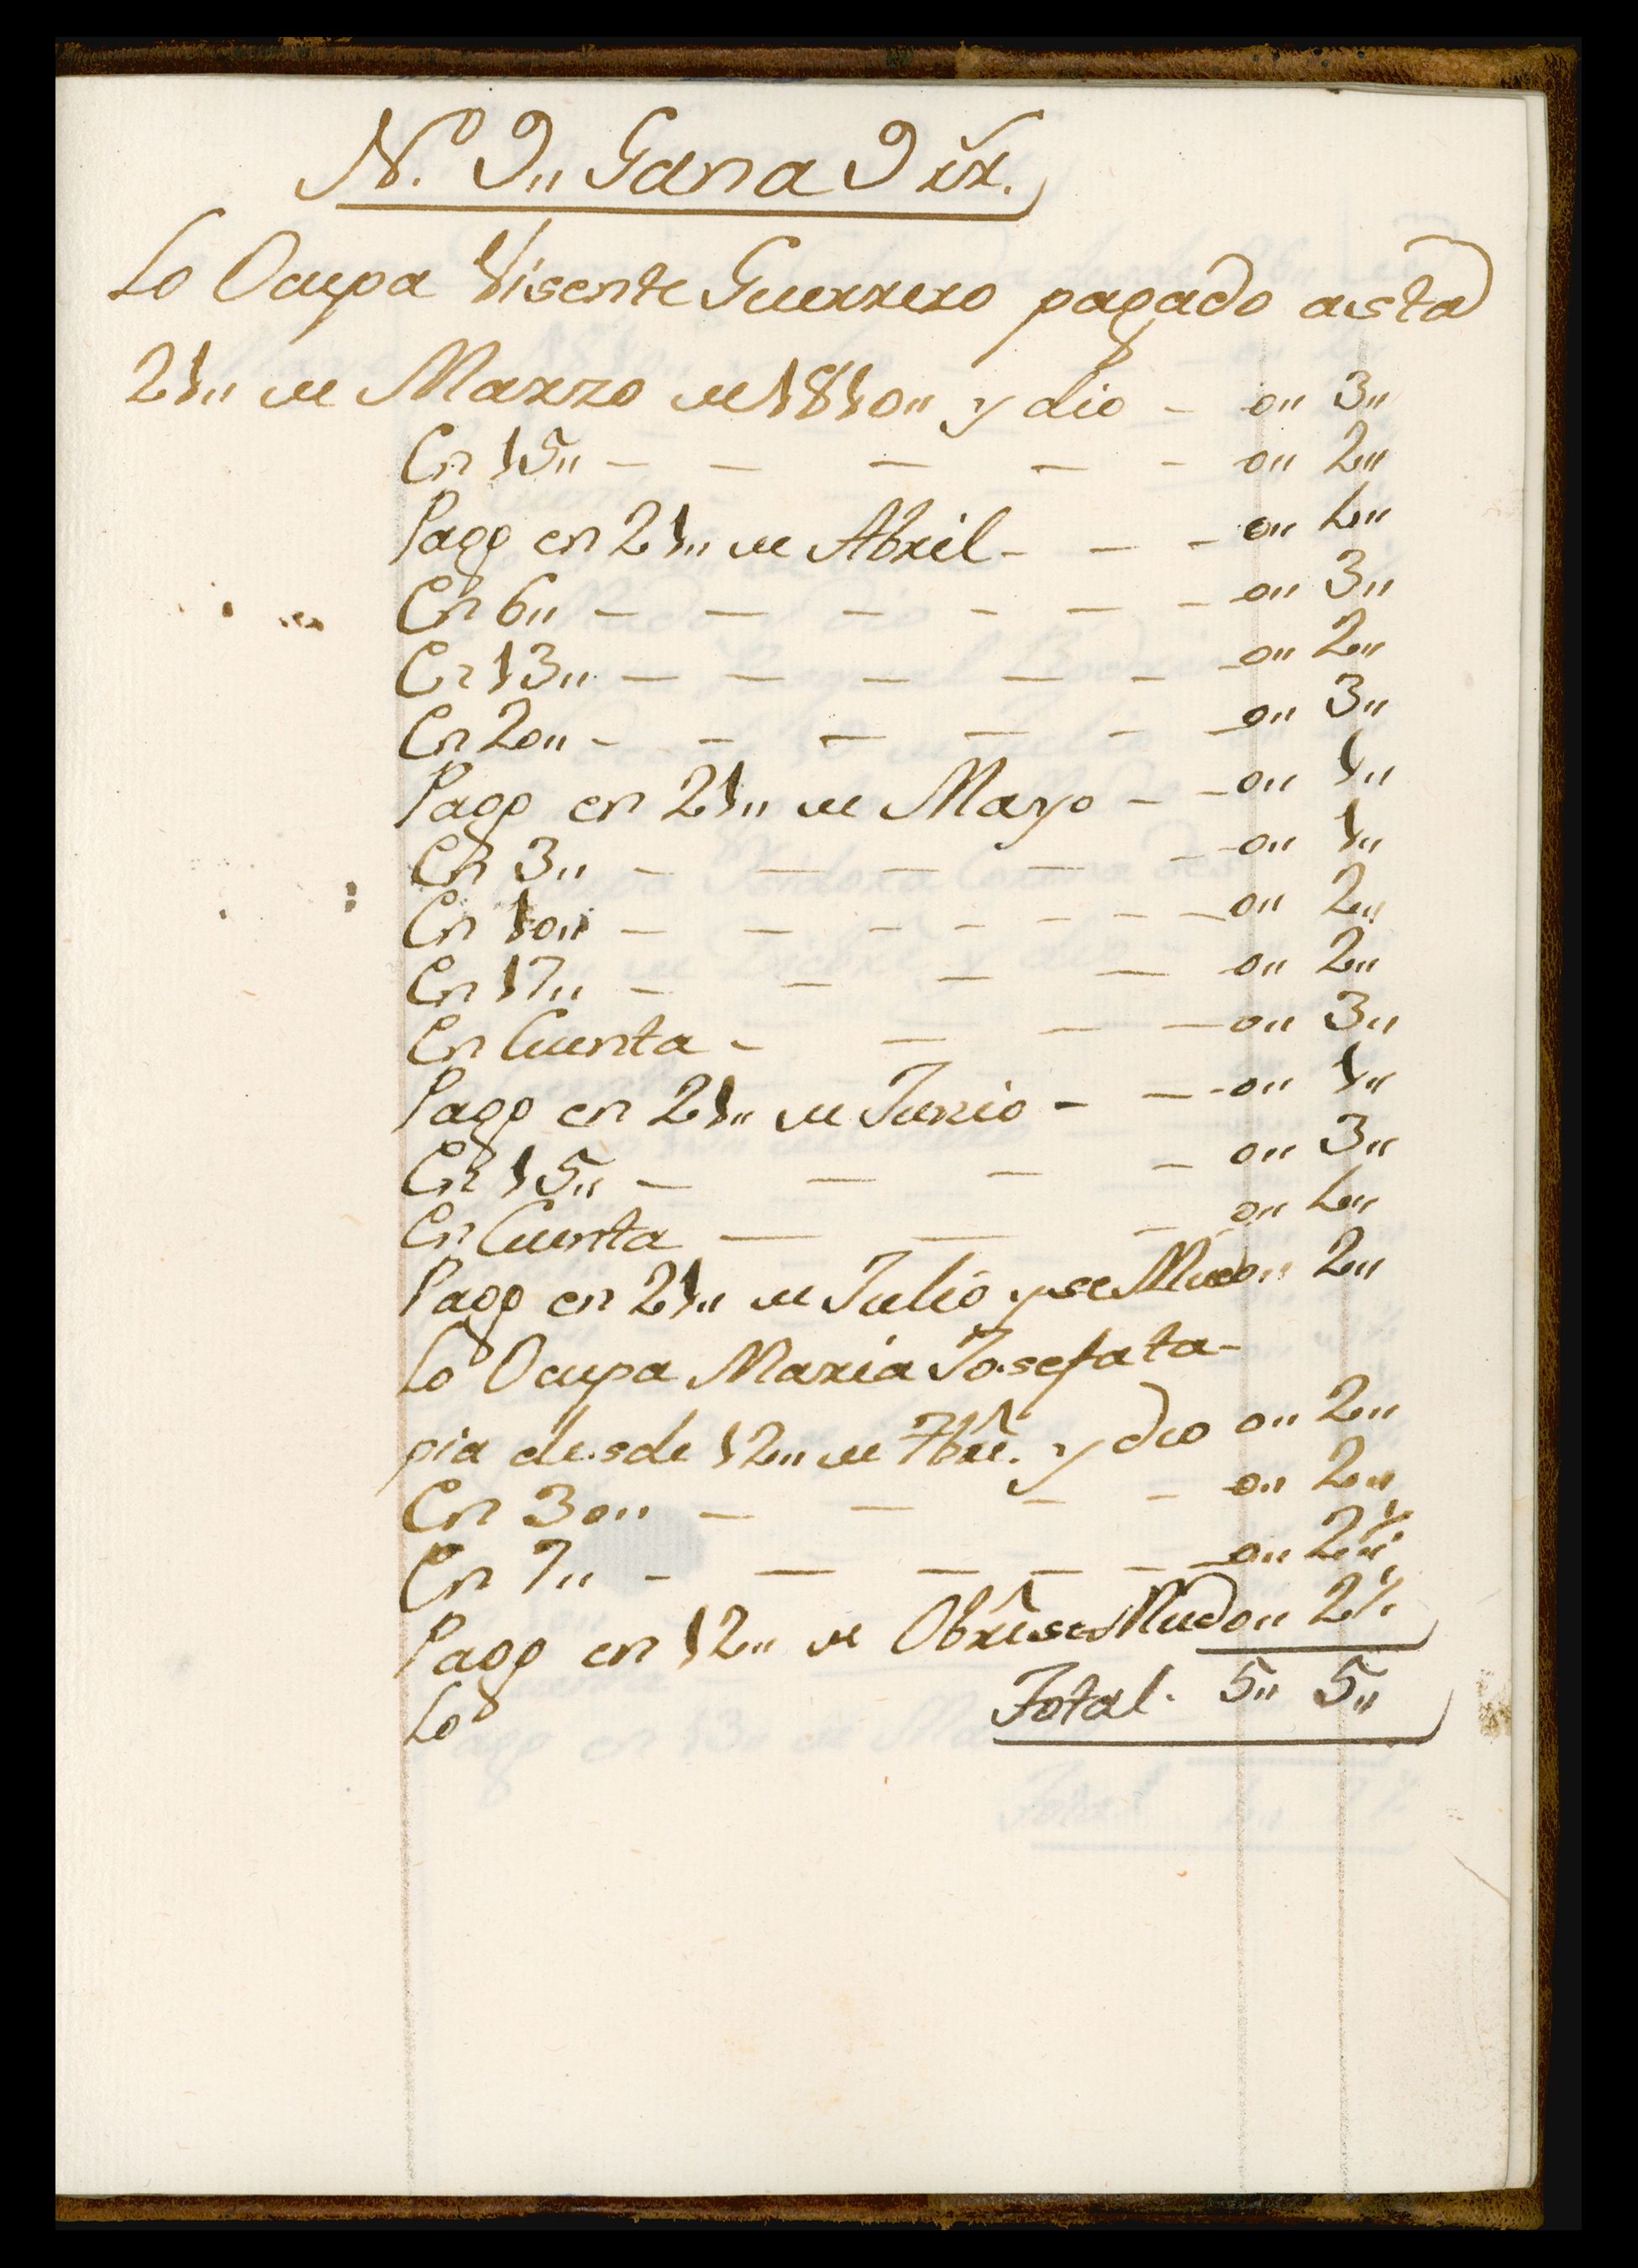 N. 9,, Gana 9 rr.
Lo Ocupa Visente Guerrero pagado asta
21,, de Marzo de 1810,, y dio - 0,, 3,,
En 15,, - - - - - 0,, 2,,
Pago en 21,, de Abril - - - 0,, 4,,
En 6,, - - - - - - 0,, 3,,
En 13,, - - - - - - 0,, 2,,
En 20,, - - - - - - 0,, 3,,
Pago en 21,, de Mayo - - 0,, 1,,
En 3,, - - - - - 0,, 1,,
En 10,, - - - - - - - 0,, 2,,
En 17,, - - - - 0,, 2,,
En Cuenta - - - - 0,, 3,,
Pago en 21,, de Junio - - 0,, 1,,
En 15,, - - - - 0,, 3,,
En Cuenta - - - 0,, 4,,
Pago en 21,, de Julio y se Mudo 0,, 2,,
Lo Ocupa Maria Josefa ta-
pia desde 12,, de 7bre. y dio 0,, 2,,
En 30,, - - - - 0,, 2,,
En 7,, - - - - - - 0,, 2½,,
Pago en 12,, de Obre se Mudo 0,, 2½
Lo Total. 5,, 5,,